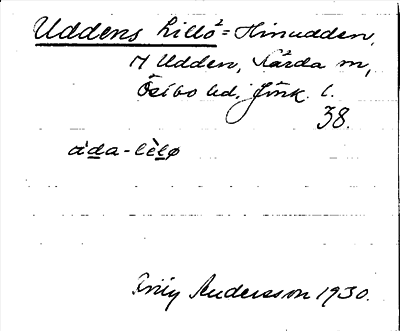 Uddens Lillö = Hinudden,
H Udden, Kärda sn,
Östbo hd, Jönk. l.
38.
àda - lèlø
Andersson 1930.